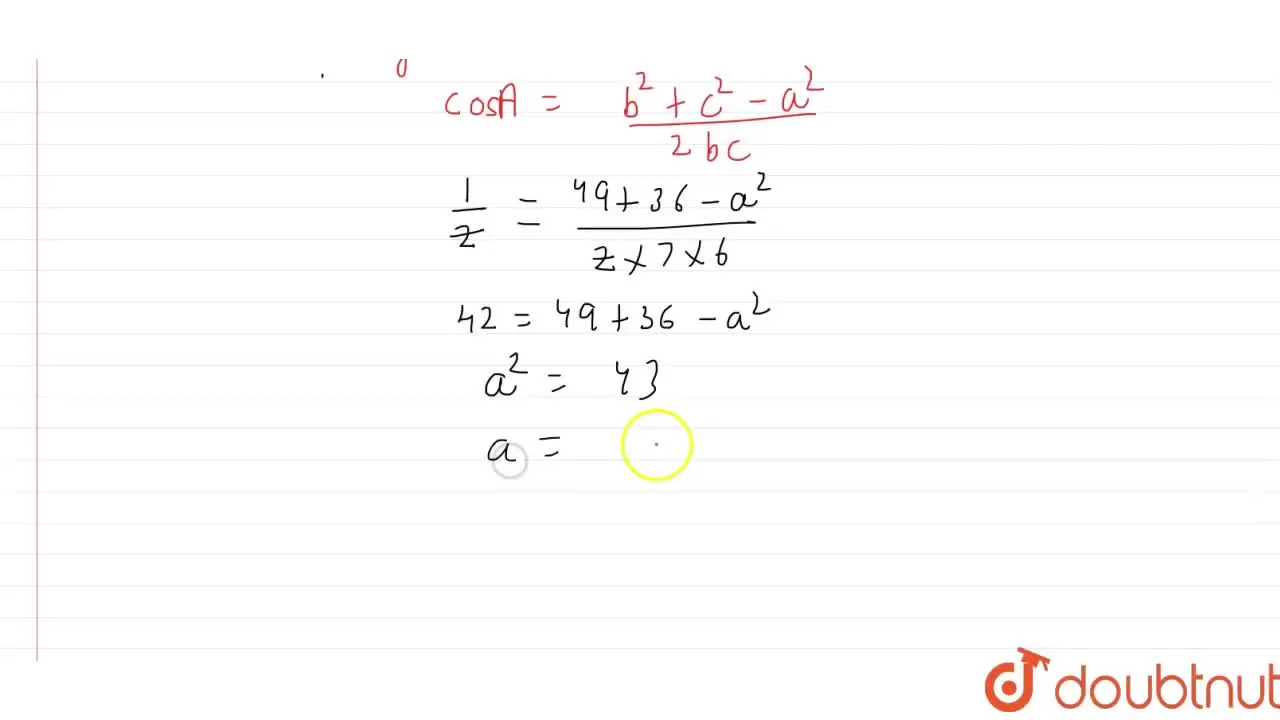 cosA = b² + c² - a² / 2bc
1/2 = 49 + 36 - a² / 2 × 7 × 6
42 = 49 + 36 - a²
a² = 43
a =
doubtnut